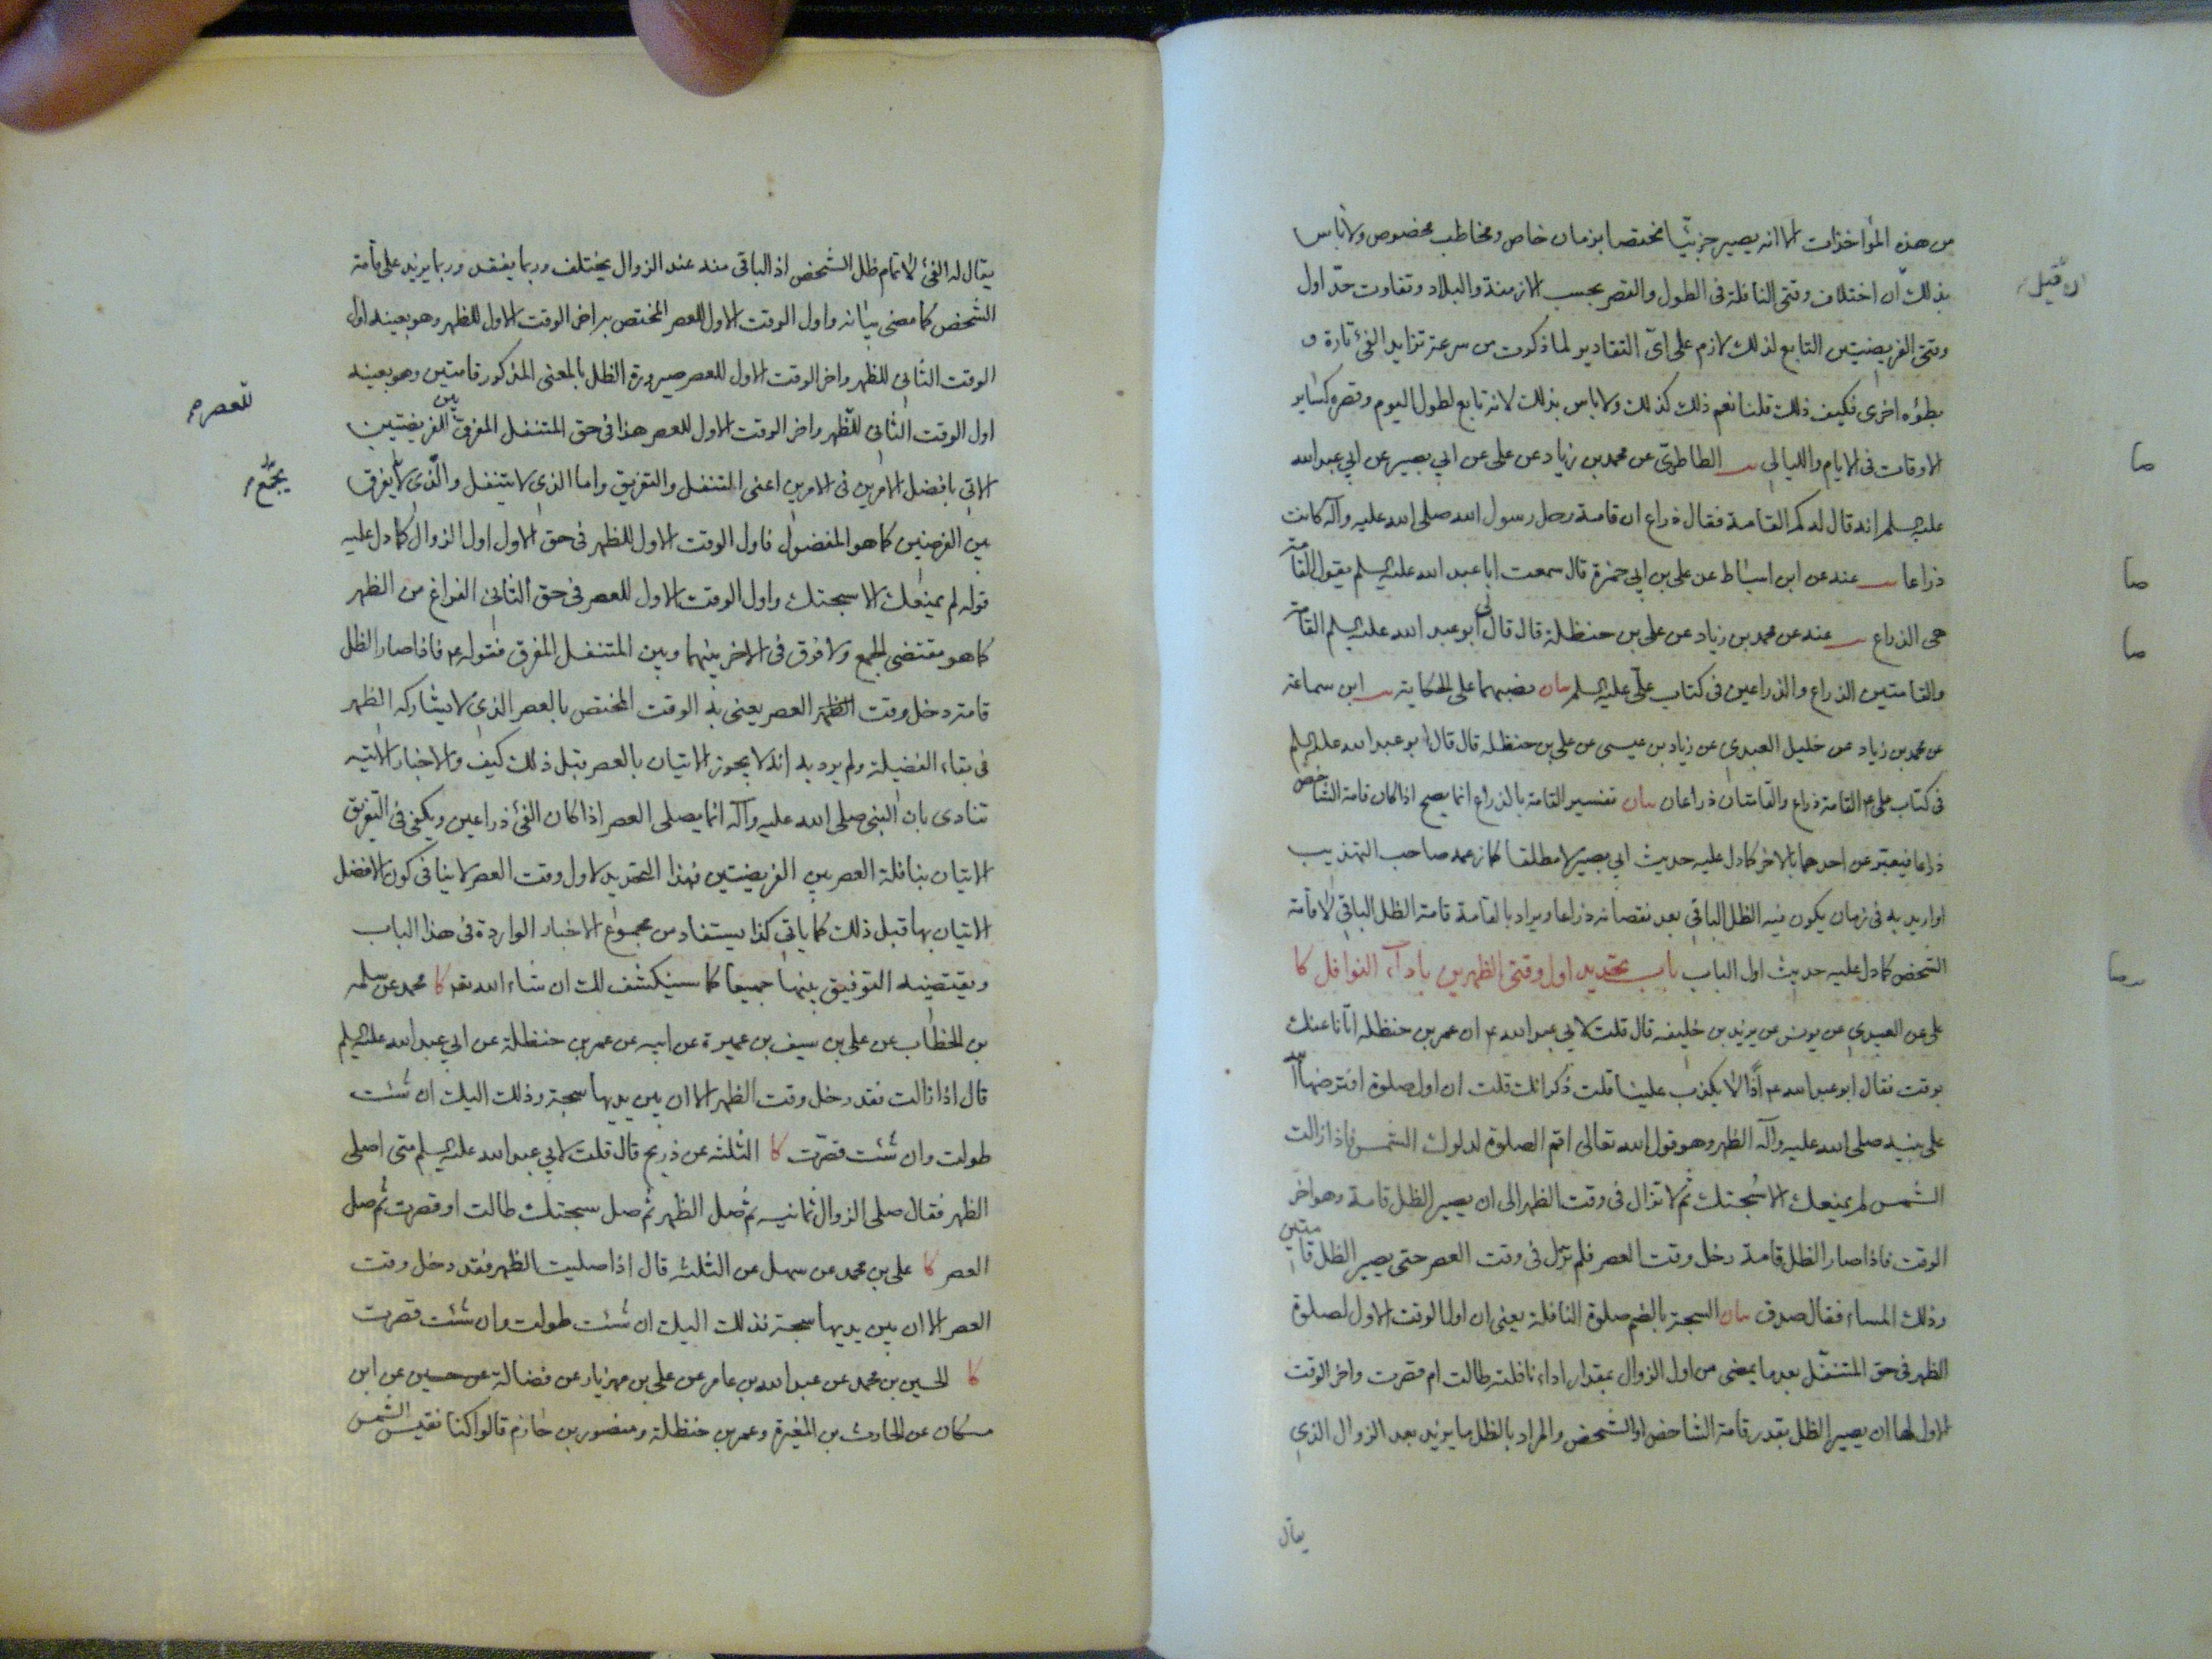 من هذه المؤاخذات الا انه يصير جزئيا مختصا بزمان خاص ومخاطب مخصوص ولا باس
ان قيل
بذلك ان اختلاف وقتى النافلة فى الطول والقصر بحسب الازمنة والبلاد وتفاوت حد اول
وقتى الفريضتين التابع لذلك لازم على اى التقادير لما ذكرت من سرعة تزايد الفئ تارة و
بطؤه اخرى فكيف ذلك قلنا نعم ذلك كذلك ولا باس بذلك لانه تابع لطول اليوم وقصره كساير
الاوقات فى الايام والليالى يب الطاطرى عن محمد بن زياد عن على عن ابي بصير عن ابي عبد الله
صا
عليه السلم انه قال له كم القامة فقال ذراع ان قامة رحل رسول الله صلى الله عليه وآله كانت
ذراعا يب عنه عن ابن اسباط عن على بن ابي حمزة قال سمعت ابا عبد الله عليه السلم يقول القامة
صا
هى الذراع يب عنه عن محمد بن زياد عن على بن حنظلة قال قال لى ابو عبد الله عليه السلم القامة
صا
والقامتين الذراع والذراعين فى كتاب على عليه السلم بيان نصبهما على الحكاية يب ابن سماعة
عن محمد بن زياد عن خليل العبدى عن زياد بن عيسى عن على بن حنظلة قال قال ابو عبد الله عليه السلم
فى كتاب على ع القامة ذراع والقامتان ذراعان بيان تفسير القامة بالذراع انما يصح اذا كان قامة الشاخص
ذراعا فيعبر عن احدهما بالاخر كما دل عليه حديث ابي بصير لا مطلقا كما زعمه صاحب التهذيب
او اريد به فى زمان يكون فيه الظل الباقى بعد نقصانه ذراعا ويراد بالقامة قامة الظل الباقى لا قامة
الشخص كما دل عليه حديث اول الباب باب تحديد اول وقتى الظهرين باداء النوافل كا
صا
على عن العبيدى عن يونس عن يزيد بن خليفه قال قلت لابي عبد الله ع ان عمر بن حنظلة اتانا عنك
بوقت فقال ابو عبد الله ع اذا لا يكذب علينا قلت ذكر انك قلت ان اول صلوة افترضها الله
على نبيه صلى الله عليه وآله الظهر وهو قول الله تعالى اقم الصلوة لدلوك الشمس فاذا زالت
الشمس لم يمنعك الا سبحتك ثم لا تزال فى وقت الظهر الى ان يصير الظل قامة وهو اخر
الوقت فاذا صار الظل قامة دخل وقت العصر فلم تزل فى وقت العصر حتى يصير الظل قامتين
وذلك المساء فقال صدق بيان السبحة بالضم صلوة النافلة يعنى ان اول الوقت الاول لصلوة
الظهر فى حق المتنفل بعد ما يمضى من اول الزوال بمقدار اداء نافلته طالت ام قصرت واخر الوقت
الاول لها ان يصير الظل بقدر قامة الشاخص او الشخص والمراد بالظل ما يزيد بعد الزوال الذى
يقال
يقال له الفئ لا تمام ظل الشخص اذ الباقى منه عند الزوال يختلف وربما يفقد وربما يزيد على قامة
الشخص كما مضى بيانه واول الوقت الاول للعصر المختص به اخر الوقت الاول للظهر وهو بعينه اول
الوقت الثانى للظهر واخر الوقت الاول للعصر صيرورة الظل بالمعنى المذكور قامتين وهو بعينه
اول الوقت الثانى للظهر واخر الوقت الاول للعصر هذا فى حق المتنفل المفرق بين الفريضتين
للعصر
الاتى بافضل الامرين فى الامرين اعنى التنفل والتفريق واما الذى لا يتنفل والذى لا يفرق
يجمع
بين الفرضين كما هو المفضول فاول الوقت الاول للظهر فى حق الاول اول الزوال كما دل عليه
قوله لم يمنعك الا سبحتك واول الوقت الاول للعصر فى حق الثانى الفراغ من الظهر
كما هو مقتضى الجمع ولا فرق فى الاخر بينهما وبين المتنفل المفرق فقوله ع فاذا صار الظل
قامة دخل وقت الظهر العصر يعنى به الوقت المختص بالعصر الذى لا يشاركه الظهر
فى بقاء الفضيلة ولم يرد به انه لا يجوز الاتيان بالعصر قبل ذلك كيف والاخبار الاتيه
تنادى بان النبى صلى الله عليه وآله انما يصلى العصر اذا كان الفئ ذراعين ويكفى فى التفريق
الاتيان بنافلة العصر بين الفريضتين فهذا التحديد لاول وقت العصر لا ينافى كون الافضل
الاتيان بها قبل ذلك كما ياتى كذا يستفاد من مجموع الاخبار الواردة فى هذا الباب
ويقتضيه التوفيق بينها جميعا كما سينكشف لك ان شاء الله تعه كا محمد عن سلمه
بن الخطاب عن على بن سيف بن عميرة عن ابيه عن عمر بن حنظلة عن ابي عبد الله عليه السلم
قال اذا زالت فقد دخل وقت الظهر الا ان بين يديها سبحة وذلك اليك ان شئت
طولت وان شئت قصرت كا الثلثه عن ذريح قال قلت لابي عبد الله عليه السلم متى اصلى
الظهر فقال صلى الزوال ثمانيه ثم صل الظهر ثم صل سبحتك طالت او قصرت ثم صل
العصر كا على بن محمد عن سهل عن الثلثه قال اذا صليت الظهر فقد دخل وقت
العصر الا ان بين يديها سبحة فذلك اليك ان شئت طولت وان شئت قصرت
كا الحسين بن محمد عن عبد الله بن عامر عن على بن مهزيار عن فضالة عن حسين عن ابن
مسكان عن الحارث بن المغيرة وعمر بن حنظلة ومنصور بن حازم قالوا كنا نقيس الشمس